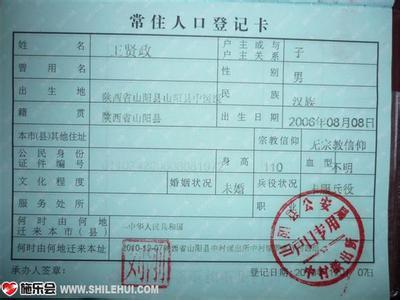 常住人口登记卡
姓名 王贤政 户主或与户主关系 子
曾用名 性别 男
出生地 陕西省山阳县山阳县中村镇 民族 汉族
籍贯 陕西省山阳县 出生日期 2006年08月08日
本市(县)其他住址 宗教信仰 无宗教信仰
公民身份证件编号 身高 110 血型 不明
文化程度 婚姻状况 未婚 兵役状况 未服兵役
服务处所
何时由何地迁来本市(县) 中华人民共和国
何时由何地迁来本址 2010-12-07陕西省山阳县中村派出所中村镇
承办人签章: 登记日期:
山阳县公安
户口专用章
施乐会
WWW.SHILEHUI.COM